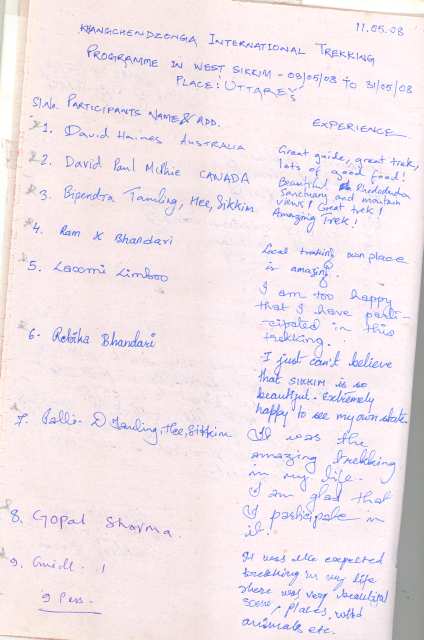 11.05.03
KHANGCHENDZONGA INTERNATIONAL TREKKING
PROGRAMME IN WEST SIKKIM - 03/05/03 TO 31/05/03
PLACE: UTTAREY
Sl.No. PARTICIPANTS NAME & ADD. EXPERIENCE
1. David Haines AUSTRALIA
Great guide, great trek,
lots of good food!
2. David Paul McPhie CANADA
Beautiful Rhododendron
Sanctuary and mountain
views! Great trek!
3. Bipendra Tamling, Hee, Sikkim
Amazing Trek!
4. Ram K Bhandari
Local trekking own place
is amazing.
5. Laxmi Limboo
I am too happy
that I have parti-
cipated in this
trekking.
6. Rebika Bhandari
I just can't believe
that SIKKIM is so
beautiful. Extremely
happy to see my own state.
7. D Tamling, Hee, Sikkim
It was the
amazing trekking
in my life.
I am glad that
I participate in
it.
8. Gopal Sharma.
9. Guide - 1
It was the expected
trekking in my life
there was very beautiful
scene, places, wild
animals etc.
9 Pers.